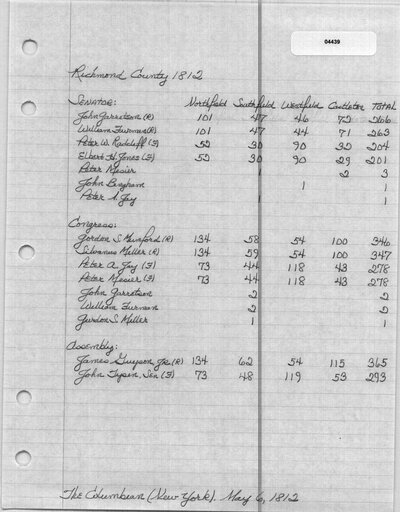 04439
Richmond County 1812
Senator: Northfield Southfield Westfield Castleton Total
John Garretson (R) 101 47 46 72 266
William Furman (R) 101 47 44 71 263
Peter W. Radcliff (F) 52 30 90 32 204
Elbert H. Jones (F) 52 30 90 29 201
Peter Mesier 1 2 3
John Bingham 1 1
Peter A. Jay 1 1
Congress:
Gordon S. Mumford (R) 134 58 54 100 346
Silvanus Miller (R) 134 59 54 100 347
Peter A. Jay (F) 73 44 118 43 278
Peter Mesier (F) 73 44 118 43 278
John Garretson 2 2
William Furman 2 2
Gurdon S. Miller 1 1
Assembly:
James Guyson Jr. (R) 134 62 54 115 365
John Tysen, Sen (F) 73 48 119 53 293
The Columbian (New York). May 6, 1812